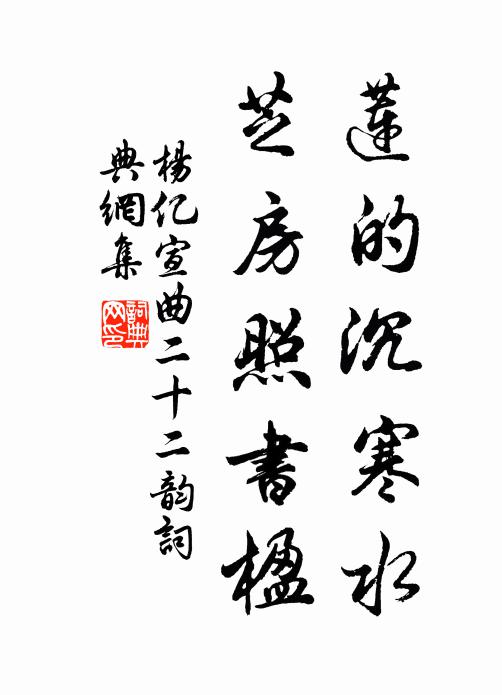 蓮的沉寒水
芝房照書楹
楊亿宣曲二十二韵詞
典網集
詞典
网印